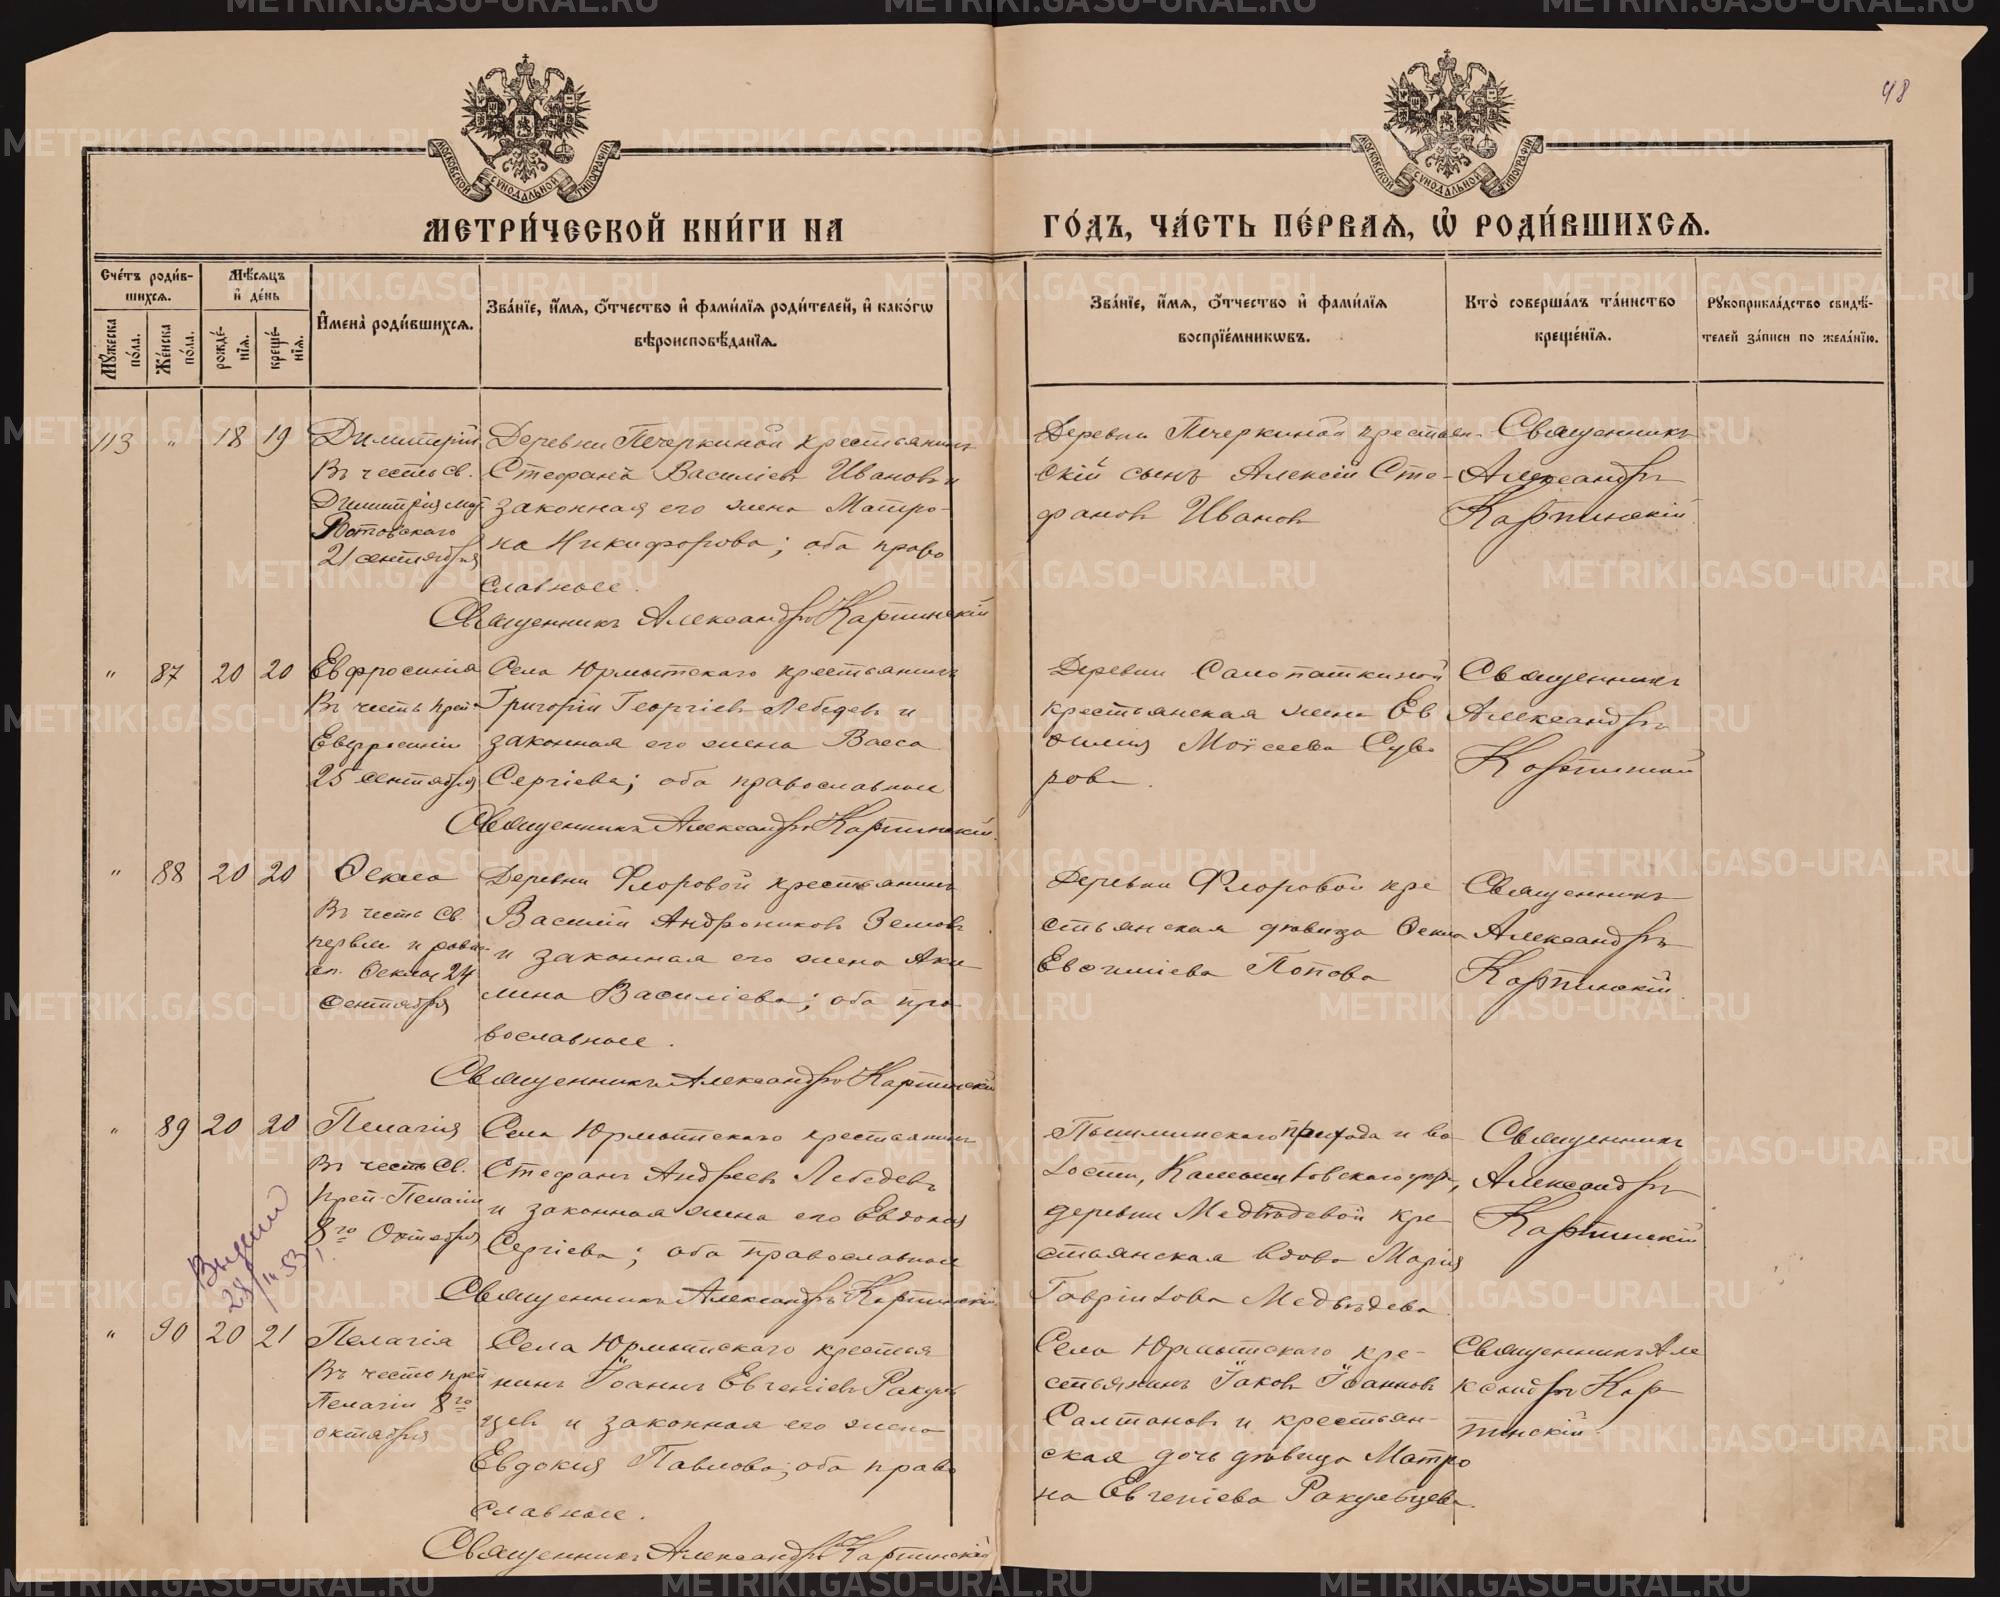 48
МОСКОВСКОЙ СѴНОДАЛЬНОЙ ТИПОГРАФІИ
МОСКОВСКОЙ СѴНОДАЛЬНОЙ ТИПОГРАФІИ
МЕТРИ́ЧЕСКОЙ КНИ́ГИ НА ГО́ДЪ, ЧА́СТЬ ПЕ́РВАѦ, Ѽ РОДИ́ВШИХСѦ.
Сче́тъ роди́в-
шихсѧ.
Мѣ́сѧцъ
и҆ де́нь
Мꙋ́жеска
по́ла.
Же́нска
по́ла.
рожде́-
нїѧ.
креще́-
нїѧ.
И҆мена̀ роди́вшихсѧ.
Зва́нїе, и҆́мѧ, ѻ҆́тчество и҆ фами́лїѧ роди́телей, и҆ како́гѡ
вѣроисповѣ́данїѧ.
Зва́нїе, и҆́мѧ, ѻ҆́тчество и҆ фами́лїѧ
воспрїе́мникѡвъ.
Кто̀ соверша́лъ та́инство
креще́нїѧ.
Рꙋкоприкла́дство свидѣ́-
телей за́писи по жела́нїю.
113 " 18 19
Димитрій
Въ честь Св.
Димитрія мит.
Ростовскаго
21 сентября
Деревни Печеркиной крестьянинъ
Стефанъ Василіевъ Ивановъ и
законная его жена Матро-
на Никифорова; оба право
славные.
Священникъ Александръ Карпинскій
Деревни Печеркиной крестьян-
скій сынъ Алексій Сте-
фановъ Ивановъ
Священникъ
Александръ
Карпинскій
" 87 20 20
Евфросинія
Въ честь преп
Евфросиніи
25 сентября
Села Юрмытскаго крестьянинъ
Григорій Георгіевъ Лебедевъ и
законная его жена Васса
Сергіева; оба православные
Священникъ Александръ Карпинскій.
Деревни Салопаткиной
крестьянская жена Ев
ѳимія Моѵсеева Суво
рова.
Священникъ
Александръ
Карпинскій
" 88 20 20
Ѳекла
Въ честь Св.
первом и равно
ап. Ѳеклы 24
Сентября
Деревни Флоровой крестьянинъ
Василій Андрониковъ Земовъ
и законная его жена Аки
лина Василіева; оба пра-
вославные.
Священникъ Александръ Карпинскій
Деревни Флоровой кре
стьянская дѣвица Ѳекла
Евѳиміева Попова
Священникъ
Александръ
Карпинскій
" 89 20 20
Пелагія
Въ честь Св.
преп. Пелагіи
8го Октября
Села Юрмытскаго крестьянинъ
Стефанъ Андреевъ Лебедевъ
и законная жена его Евдокія
Сергіева; оба православные
Священникъ Александръ Карпинскій
Пышминскаго прихода и во-
лости, Камышловскаго уѣзда,
деревни Медвѣдевой кре-
стьянская вдова Марія
Гавріилова Медвѣдева
Священникъ
Александръ
Карпинскій
" 90 20 21
Пелагія
Въ честь преп
Пелагіи 8го
октября
Села Юрмытскаго крестья
нинъ Іоаннъ Евгеніевъ Ракуль
цевъ и законная его жена
Евдокія Павлова; оба право
славные.
Священникъ Александръ Карпинскій
Села Юрмытскаго кре-
стьянинъ Іаковъ Іоанновъ
Салтановъ и крестьян-
ская дочь дѣвица Матро
на Евгеніева Ракульцева.
Священникъ Але
ксандръ Кар
пинскій.
METRIKI.GASO-URAL.RU